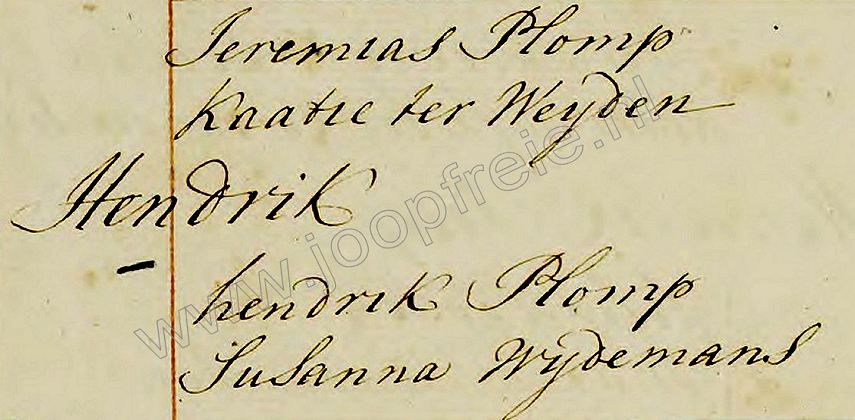 Jeremias Plomp
Kaatie ter Weyden
Hendrik
hendrik Plomp
Susanna Wydemans
www.joopfreie.nl